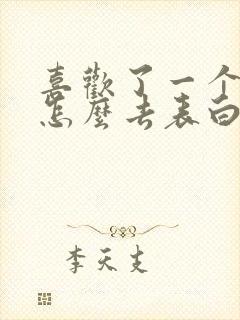 喜歡了一个
怎麼去表白
李天支